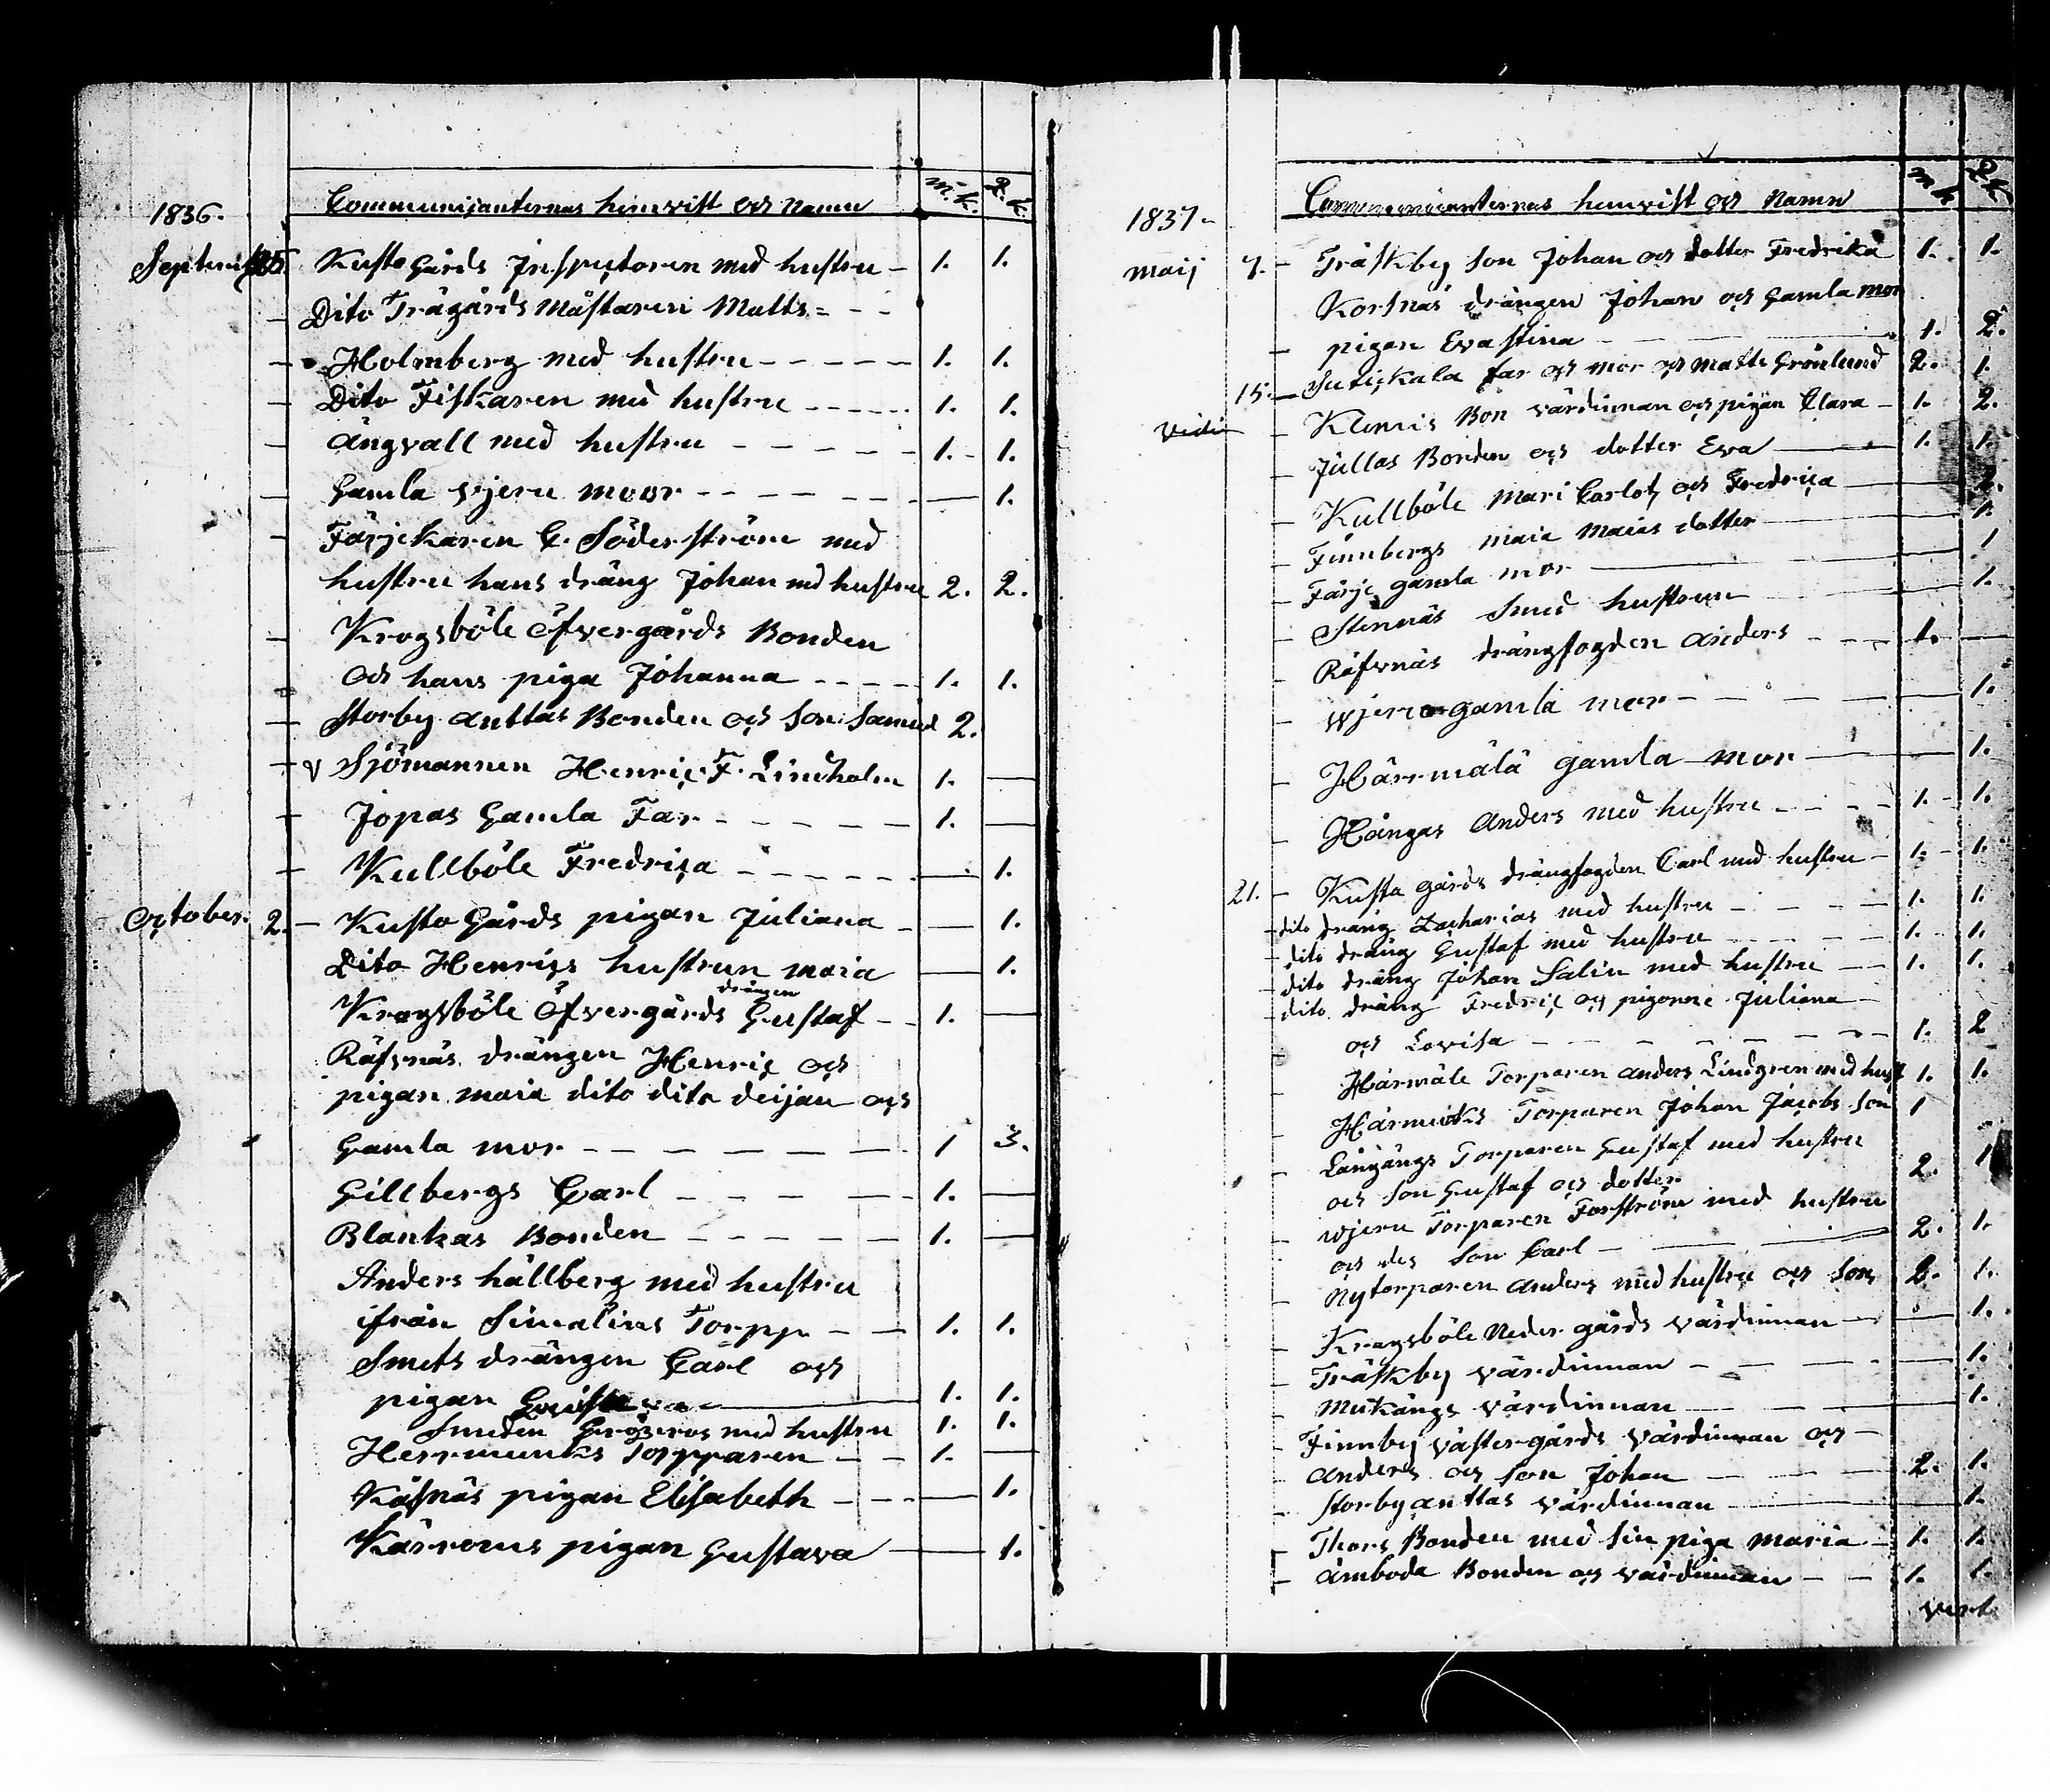 Communicanternas hemvist och Namn m.k. Q.k.
1836.
September 25. Kusto Gårds Inspectoren med hustru - 1. 1.
Dito Trägårds Mästaren Matts = - -
Holmberg med hustru - - - - - 1. 1.
Dito Fiskaren med hustru - - - - - 1. 1.
Ängvall med hustru - - - - - 1. - 1.
Gamla wjeru moor - - - - - - — 1.
Färjekaren C. Söderström med
hustru hans dräng Johan md hustru 2. 2.
Krogsböle Öfvergårds Bonden
och hans piga Johanna - - - - 1. 1.
Storby Anttas Bonden och Son Samuel 2.
v Sjömannen Henric F. Lindholm 1. —
Jopas Gamla Far - - - - - 1. —
Kullböle Fredrica - - - - - — 1.
October. 2. - Kusto Gårds pigan Juliana - — 1.
Dito Henrics hustrun maia — 1.
drängen
Krogsböle Öfvergårds Gustaf - - 1. —
Räfsnäs drängen Henric och
pigan maia dito dito deijan och
Gamla mor - - - - - - 1 3.
Gillbergs Carl - - - - 1. —
Blankas Bonden - - - - - 1. —
Anders hällberg med hustru
ifrån Simalins Torpp - - 1. 1.
Smeds drängen Carl och
pigan — 1. 1.
Smeden med hustru 1. 1.
Herrmunks Torpparen - - 1. —
Käsnäs pigan Elisabeth - - - — 1.
Kärroms pigan Gustava — 1.
Communicanternas hemvist och Namn m k Q k
1837.
Maij 7. - Träskby Son Johan och dotter Fredrika 1. 1.
Korsnäs drängen Johan och Gamla mor
pigan Eva Stina - - - 1. 2.
15. - Sutickala far och mor och Matts Grönlund 2. 1.
Klemis Bon värdinnan och pigan Clara - 1. 2.
Jullas Bonden och dotter Eva — 1. 1.
Kullböle Mari Carlot och Fredrica — 2.
Finnbergs maia Maias dotter — 1.
Färje gamla mor — 1
Stennäs Smed hustrun 1.
Räfsnäs drängfogden Anders - - - 1. —
wjeru gamla mor - - - - — 1.
Härmälä gamla mor — 1.
Hångas Anders med hustru - - - - 1. - 1.
21. - Kusta gårds drängfogden Carl med hustru - 1. - 1.
dito dräng Zacharias med hustru - - - - 1. 1.
dito dräng Gustaf med hustru - - - - 1. 1.
dito dräng Johan Salin med hustru - - 1. 1.
dito dräng Fredric och pigorne Juliana -
och Lovisa - - - - - - - 1. 2
Härmäle Torparen Anders Lindgren med hust 1. 1.
Härmunks Torparen Johan Jacobs Son 1
Långängs Torparen Gustaf med hustru
och Son Gustaf och dotter 2. 1
wjeru Torparen Forström med hustru
och des Son Carl - — 2. 1.
Nytorparen Anders med hustru och Son 2. 1.
Krogsböle Neder gårds värdinnan - — 1.
Träskby värdinnan - - - - — 1.
Mukängs värdinnan - - - — 1.
Finnby västergårds värdinnan och -
Anders och Son Johan - - - - 2. 1.
Storby Anttas värdinnan — 1.
Thors Bonden med Sin piga Maria - 1. 1.
Åmboda Bonden och värdinnan - - 1. 1.